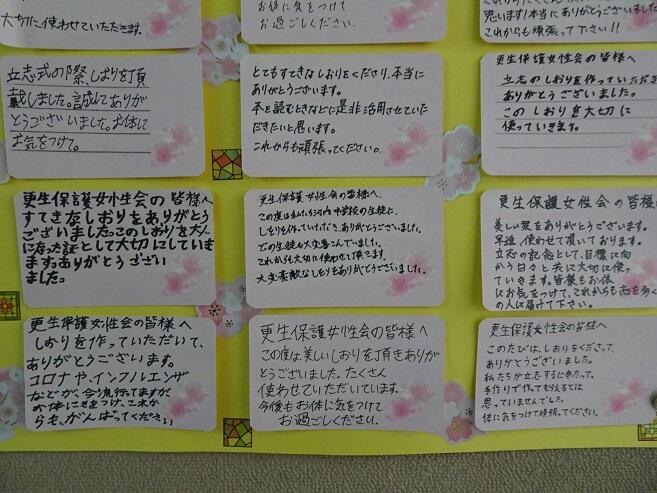 大切に使わせていただきます。
お体に気をつけて
お過ごしください。
思います!本当にありがとうございました
これからも頑張って下さい!!
立志式の際、しおりを頂
戴しました。誠にありが
とうございました。お体に
お気をつけて。
とてもすてきなしおりをくださり、本当に
ありがとうございます。
本を読むときなどに是非活用させていた
だきたいと思います。
これからも頑張ってください。
更生保護女性会の皆様へ
立志のしおりを作っていただき
ありがとうございました。
このしおりを大切に
使っていきます。
更生保護女性会の皆様へ
すてきなしおりをありがとう
ございました。このしおりを大人
になった証として大切にしていき
ます。ありがとうござい
ました。
更生保護女性会の皆様へ、
この度は私たち河内中学校の生徒に、
しおりを作っていただき、ありがとうございました。
どの生徒も大変喜んでいました。
これからも大切に使わせて頂きます
大変素敵なしおりをありがとうございました。
更生保護女性会の皆様
美しい栞をありがとうございます。
早速、使わせて頂いております。
立志の記念として、目標に向
かう日々と共に大切に使っ
ていきます。皆様もお体
にお気をつけて、これからも志を多く
の人に届けて下さい。
更生保護女性会の皆様へ
しおりを作っていただいて、
ありがとうございます。
コロナや、インフルエンザ
などが、今流行ってますが
お体に気をつけ、これか
らも、がんばってください
更生保護女性会の皆様へ
この度は美しいしおりを頂きありが
とうございました。たくさん
使わせていただいています。
今後もお体に気をつけて
お過ごしください。
更生保護女性会の皆様へ
このたびは、しおりをくださって、
ありがとうございました。
私たちが立志するにあたって、
手作りで作ってもらえるとは
思っていませんでした。
体に気をつけて頑張ってください。